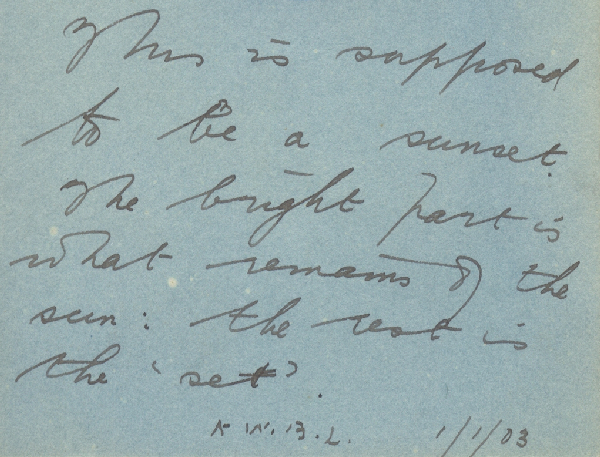 This is supposed
to be a sunset.
The bright part is
what remains of the
sun: the rest is
the 'set'.
A.W.B.L. 1/1/03